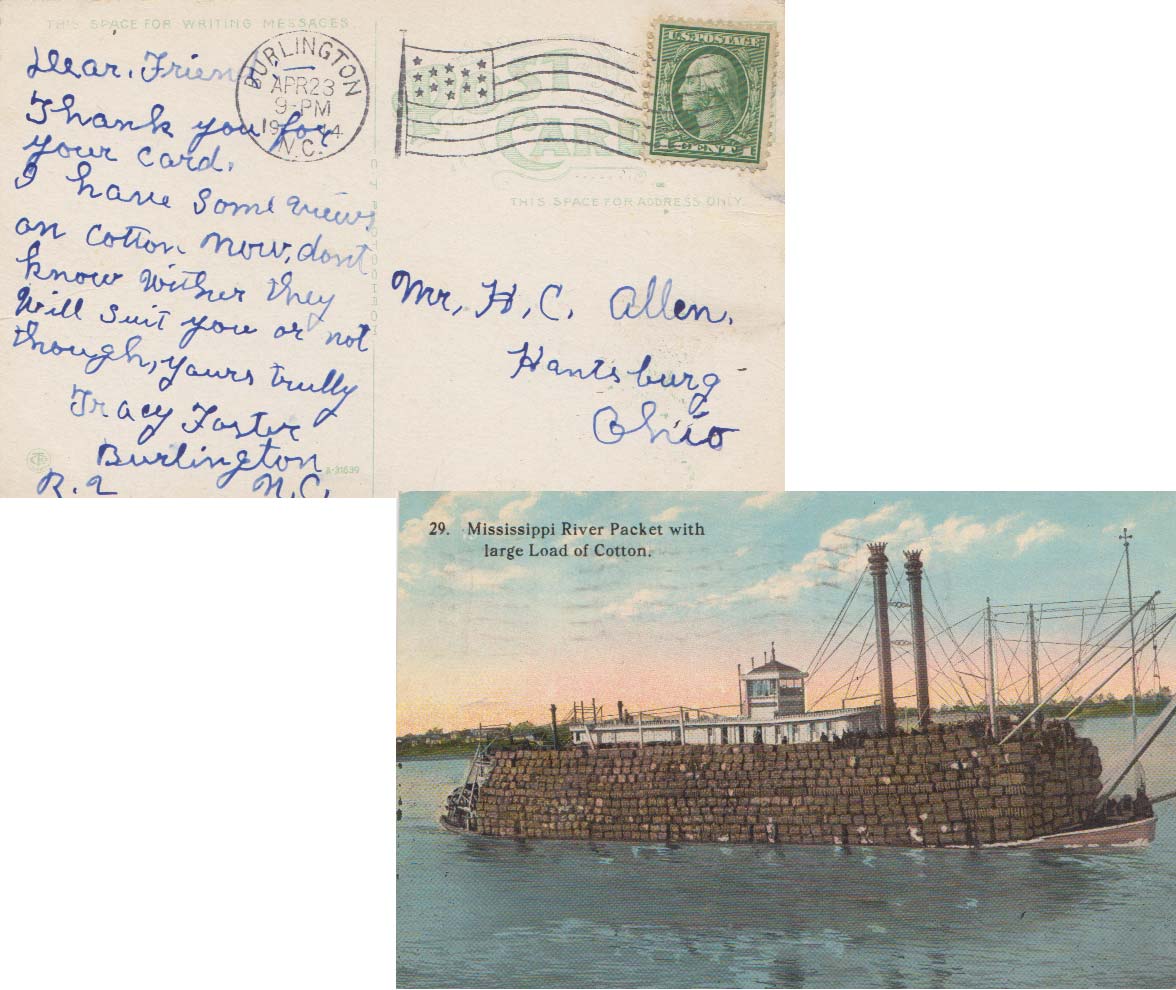 THIS SPACE FOR WRITING MESSAGES.
Dear, Friend
Thank you for
your card.
I have some views
on cotton now, dont
know wither they
will suit you or not
though, yours trully
Tracy Foster
Burlington
R.2 N.C.
A-31639
BURLINGTON
APR 23
9-PM
N.C.
U.S. POSTAGE
1 CENT 1
POST
CARD
THIS SPACE FOR ADDRESS ONLY.
Mr, H, C. Allen.
Hantsburg
Ohio
29. Mississippi River Packet with
large Load of Cotton.